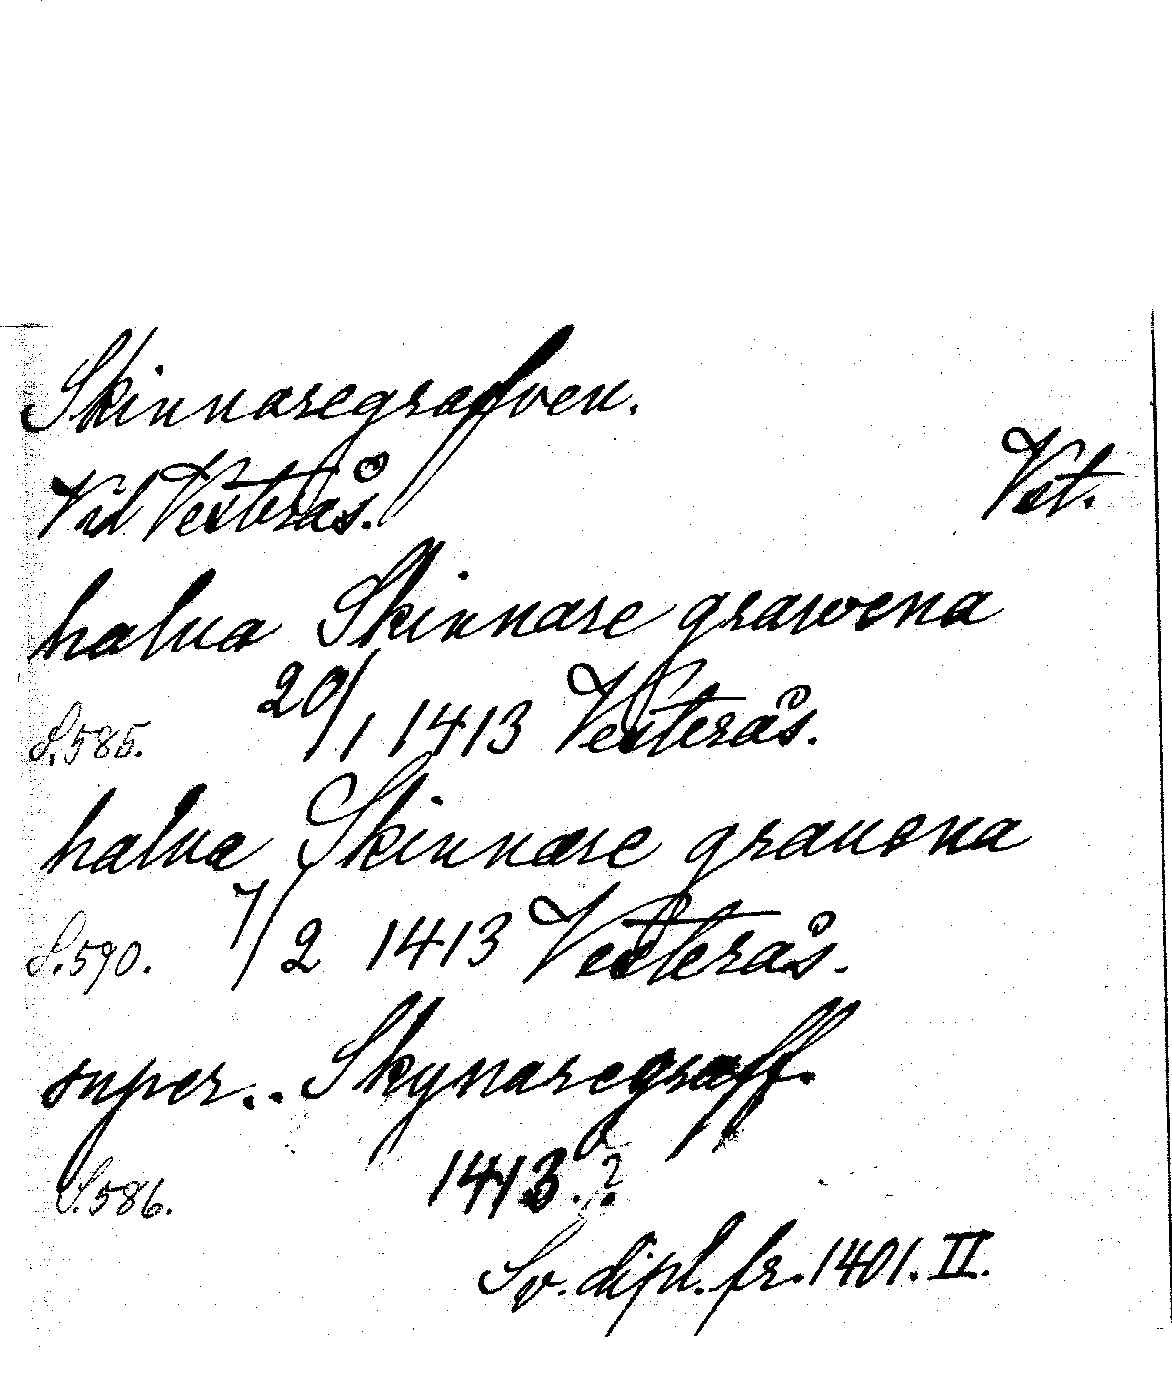 Skinnaregrafven.
Vid Vesterås.
Vst.
halua Skinnare grawena
20/1 1413 Vesterås.
S. 585.
halua Skinnare grauena
S. 590. 7/2 1413 Vesterås.
super... Skynaregraff.
S. 586. 1413.?
Sv. dipl. fr. 1401. II.